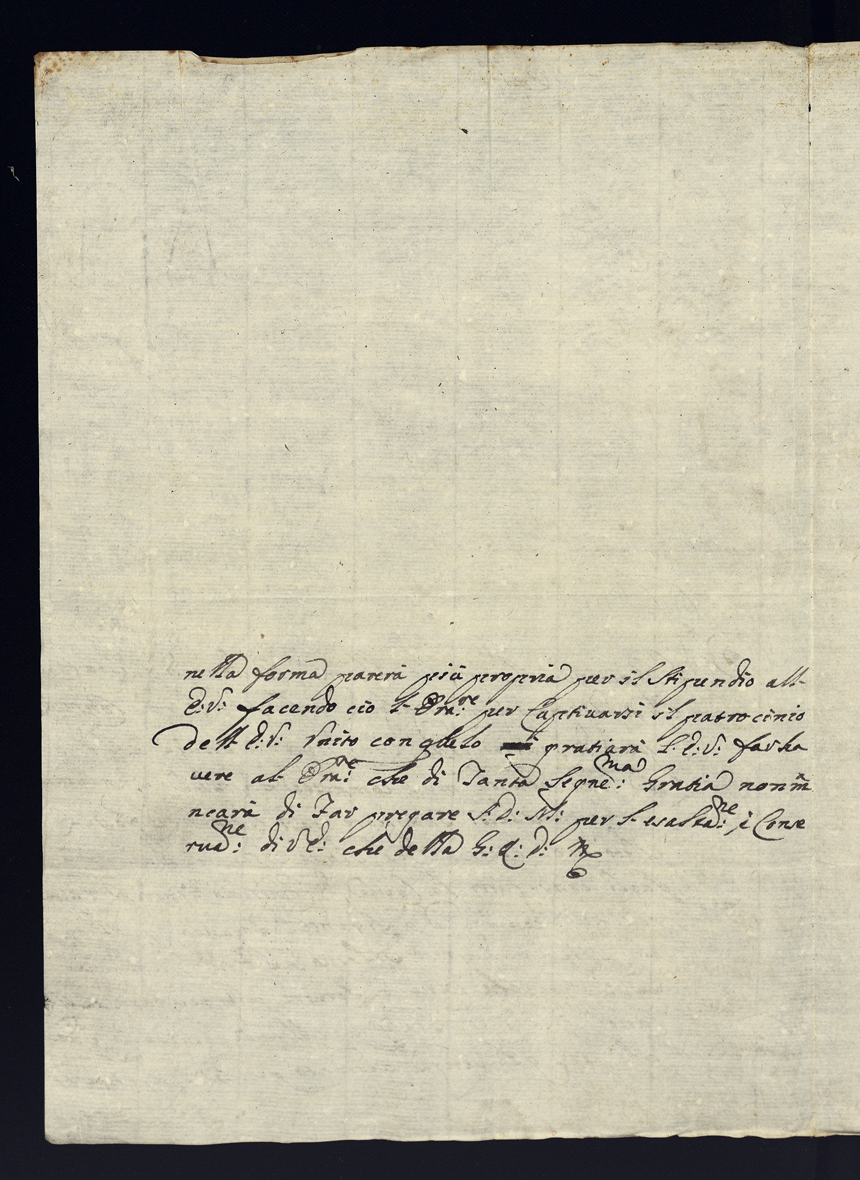 nella forma parerà più propria per il Stipendio all-
E: V: facendo ciò l- Ora:re per Captivarsi il patrocinio
dell E: V: Unito con quelo pratiarà l- E: V: farha
vere al- Ora:re che di Tanta Segne:ma Gratia non m̃
ncarà di Far pregare S: D: M: per l- esalta:ne, i Conse
rua:ne di V E: che della G: Q: D: